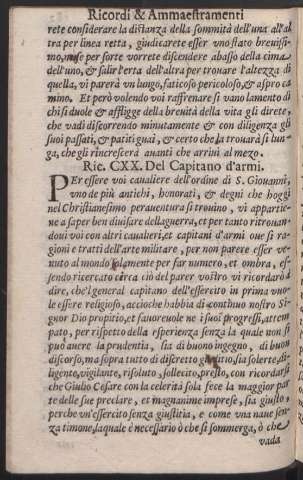 Ricordi & Ammaestramenti
rete considerare la distanza della sommità dell'una all'al
tra per linea retta, giudicarete esser vno stato breuissi-
mo, ma se per sorte vorrete discendere abasso della cima
dell'uno, & salir l'erta dell'altra per trouare l'altezza di
quella, vi parerà vn lungo, faticoso pericoloso, & aspro ca
mino. Et però volendo voi raffrenare si vano lamento di
chi si duole & affligge della breuità della vita gli direte,
che vadi discorrendo minutamente & con diligenza gli
suoi passati, & patiti guai, & certo che la trouarà si lun-
ga, che gli rincrescerà auanti che arriui al mezo.
Ric. CXX. Del Capitano d'armi.
PEr essere voi caualiere dell'ordine di S. Giouanni,
vno de più antichi, honorati, & degni che hoggi
nel Christianesimo perauentura si trouino, vi appartie-
ne a saper ben diuisare della guerra, et per tanto ritrouan-
doui voi con altri caualieri, et capitani d'armi oue si ra-
gioni e tratti dell'arte militare, per non parere esser ve-
nuto al mondo solamente per far numero, et ombra, es-
sendo ricercato circa ciò del parer vostro vi ricordarò a
dire, che'l general capitano dell'essercito in prima vuo-
le essere religioso, acciò che habbia di continuo nostro Si-
gnor Dio propitio, et fauoreuole ne i suoi progressi, attem
pato, per rispetto della esperienza senza la quale non si
può auere la prudentia, sia di buono ingegno, di buon
discorso, ma sopra tutto di discretto, sia solerte, di-
ligente, vigilante, risoluto, sollecito, presto, con ricordarsi
che Giulio Cesare con la celerità sola fece la maggior par
te delle sue preclare, et magnanime imprese, sia giusto,
perche vn'essercito senza giustitia, e come vna naue sen-
za timone, laquale è necessario ò che si sommerga, ò che
vada